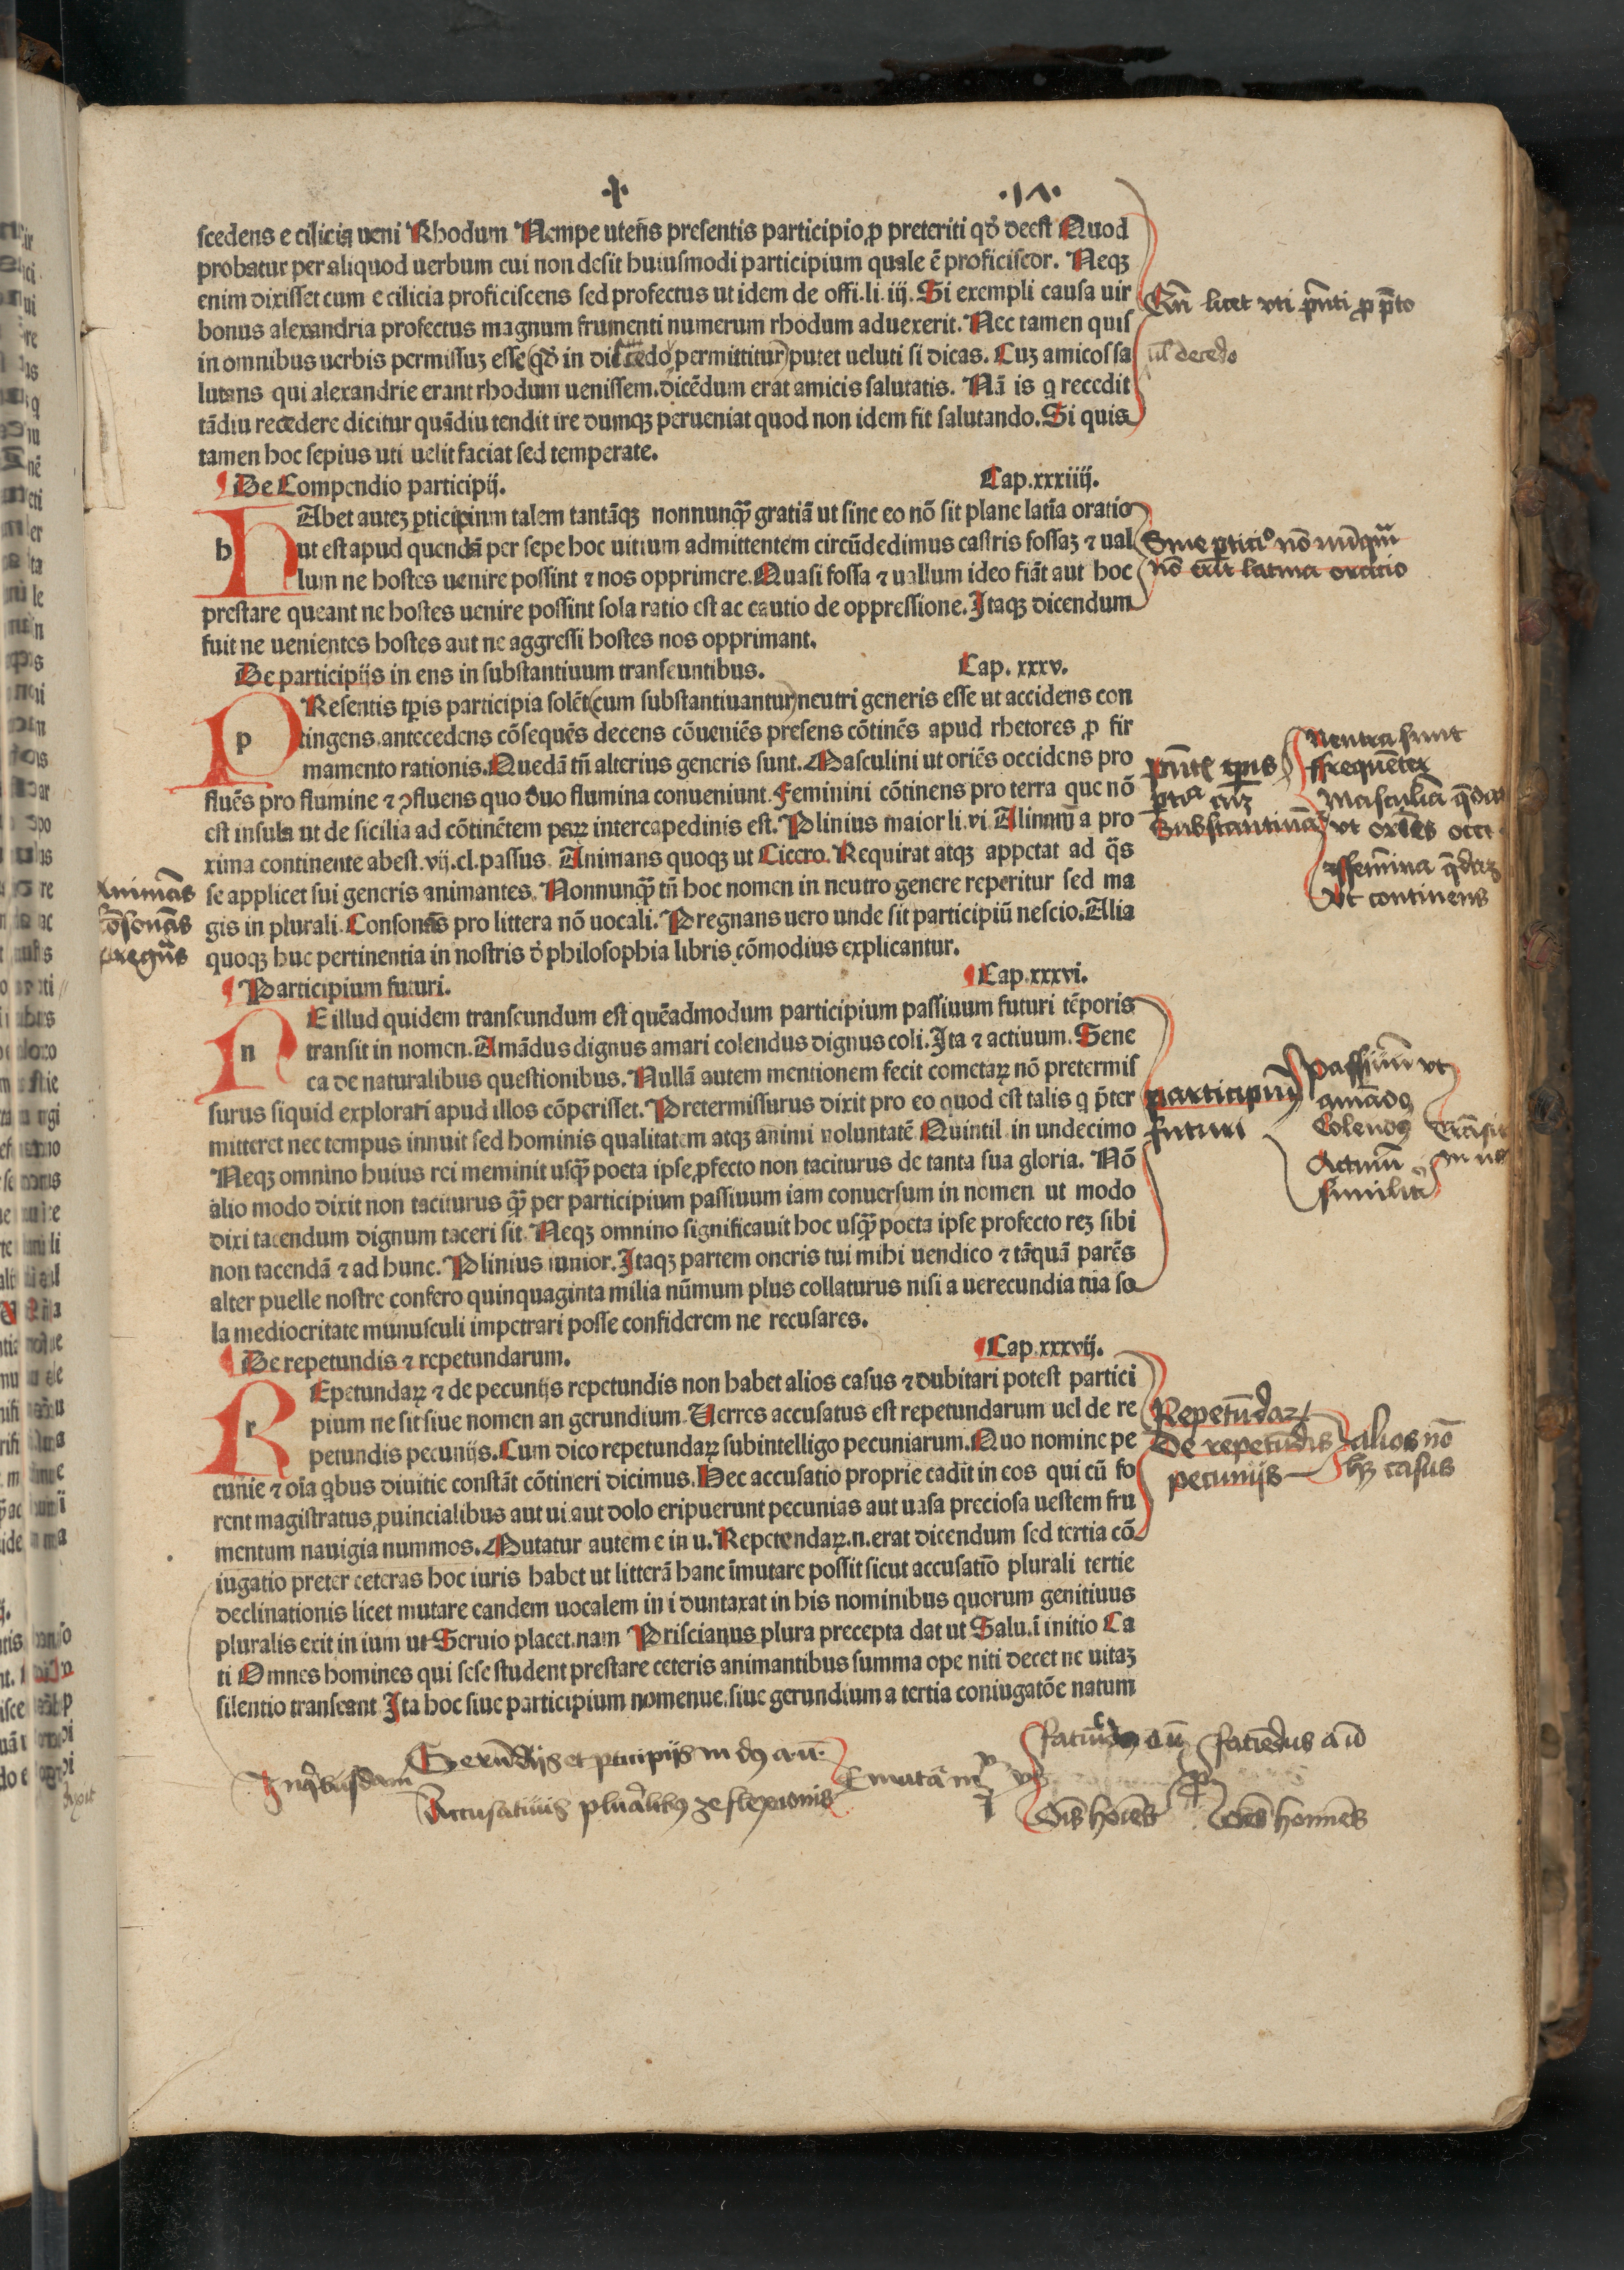 scedens e cilicia ueni Rhodum Nempe uteñs presentis participio ꝓ preteriti qđ deest Quod
probatur per aliquod uerbum cui non desit huiusmodi participium quale ē proficiscor. Neqꝫ
enim dixisset cum e cilicia proficiscens sed profectus ut idem de offi.li.iij. Si exempli causa uir
bonus alexandria profectus magnum frumenti numerum rhodum aduexerit. Nec tamen quis
in omnibus uerbis permissuꝫ esse (qđ in discedo permittitur) putet ueluti si dicas. Cuꝫ amicos sa
lutans qui alexandrie erant rhodum uenissem. dicēdum erat amicis salutatis. Nā is q recedit
tādiu recedere dicitur quādiu tendit ire dumqꝫ perueniat quod non idem fit salutando. Si quis
tamen hoc sepius uti uelit faciat sed temperate.
De Compendio participij. Cap.xxxiiij.
h Abet auteꝫ ꝑticipium talem tantāqꝫ nonnunqꝫ̄ gratiā ut sine eo nō sit plane latīa oratio
ut est apud quendā per sepe hoc uitium admittentem circūdedimus castris fossaꝫ ⁊ ual
lum ne hostes uenire possint ⁊ nos opprimere. Quasi fossa ⁊ uallum ideo fiāt aut hoc
prestare queant ne hostes uenire possint sola ratio est ac cautio de oppressione. Itaqꝫ dicendum
fuit ne uenientes hostes aut ne aggressi hostes nos opprimant.
De participijs in ens in substantiuum transeuntibus. Cap. xxxv.
p Resentis tꝑis participia solēt (cum substantiuantur) neutri generis esse ut accidens con
tingens. antecedens cōsequēs decens cōueniēs presens cōtinēs apud rhetores ꝓ fir
mamento rationis. Quedā tñ alterius generis sunt. Masculini ut oriēs occidens pro
fluēs pro flumine ⁊ ꝯfluens quo duo flumina conueniunt. Feminini cōtinens pro terra que nō
est insula ut de sicilia ad cōtinētem paꝝ intercapedinis est. Plinius maior li.vi Alinnū a pro
xima continente abest. vij.cl. passus. Animans quoqꝫ ut Cicero. Requirat atqꝫ appetat ad q̄s
se applicet sui generis animantes. Nonnunqꝫ̄ tñ hoc nomen in neutro genere reperitur sed ma
gis in plurali. Consonās pro littera nō uocali. Pregnans uero unde sit participiū nescio. Alia
quoqꝫ huc pertinentia in nostris đ philosophia libris cōmodius explicantur.
Participium futuri. Cap.xxxvi.
n E illud quidem transeundum est quēadmodum participium passiuum futuri tēporis
transit in nomen. Amādus dignus amari colendus dignus coli. Ita ⁊ actiuum. Sene
ca de naturalibus questionibus. Nullā autem mentionem fecit cometaꝝ nō pretermis
surus siquid explorati apud illos cōperisset. Pretermissurus dixit pro eo quod est talis q p̄ter
mitteret nec tempus innuit sed hominis qualitatem atqꝫ animi uoluntatē Quintil. in undecimo
Neqꝫ omnino huius rei meminit usqꝫ̄ poeta ipse ꝓfecto non taciturus de tanta sua gloria. Nō
alio modo dixit non taciturus qꝫ̄ per participium passiuum iam conuersum in nomen ut modo
dixi tacendum dignum taceri sit. Neqꝫ omnino significauit hoc usqꝫ̄ poeta ipse profecto reꝫ sibi
non tacendā ⁊ ad hunc. Plinius iunior. Itaqꝫ partem oneris tui mihi uendico ⁊ tāquā parēs
alter puelle nostre confero quinquaginta milia nūmum plus collaturus nisi a uerecundia tua so
la mediocritate munusculi impetrari posse confiderem ne recusares.
De repetundis ⁊ repetundarum. Cap.xxxvij.
r Epetundaꝝ ⁊ de pecunijs repetundis non habet alios casus ⁊ dubitari potest partici
pium ne sit siue nomen an gerundium. Uerres accusatus est repetundarum uel de re
petundis pecunijs. Cum dico repetundaꝝ subintelligo pecuniarum. Quo nomine pe
cunie ⁊ oīa qbus diuitie constāt cōtineri dicimus. Hec accusatio proprie cadit in eos qui cū fo
rent magistratus ꝓuincialibus aut ui aut dolo eripuerunt pecunias aut uasa preciosa uestem fru
mentum nauigia nummos. Mutatur autem e in u. Repetendaꝝ.n. erat dicendum sed tertia cō
iugatio preter ceteras hoc iuris habet ut litterā hanc īmutare possit sicut accusatiō plurali tertie
declinationis licet mutare eandem uocalem in i duntaxat in his nominibus quorum genitiuus
pluralis exit in ium ut Seruio placet. nam Priscianus plura precepta dat ut Salu.ī initio Ca
ti Omnes homines qui sese student prestare ceteris animantibus summa ope niti decet ne uitaꝫ
silentio transeant Ita hoc siue participium nomenue. siue gerundium a tertia coniugatōe natum
licet vti p̄nti ꝓ p̄to
ul decedo
Sine ꝑtici° nō nūq̄m
nō latina oratio
Neutra sunt
ffrequēter
Masculīa q̄dā
vt oriēs occi
ffeminina q̄daꝫ
vt continens
p̄ntꝭ tꝑis
Substantiua
Animās
cōsonās
pregn̄s
participiū
futuri
Passiuū vt
amādꝰ
Colendꝰ
Actiuū
similit̄
Trāsit
in no
Repetūdaꝝ
De repetūdis
pecunijs
alios nō
hꝫ casus
In qbusdam
Gerūdijs et ꝑticipijs in dꝰ a ū
Accusatiuis pluralibꝰ 3e flexionis
E mutāt in
v
i
vt
faciūdꝰ a ū
faciēdus a ū
ꝓ
Oīs hoīes
oēs homīes